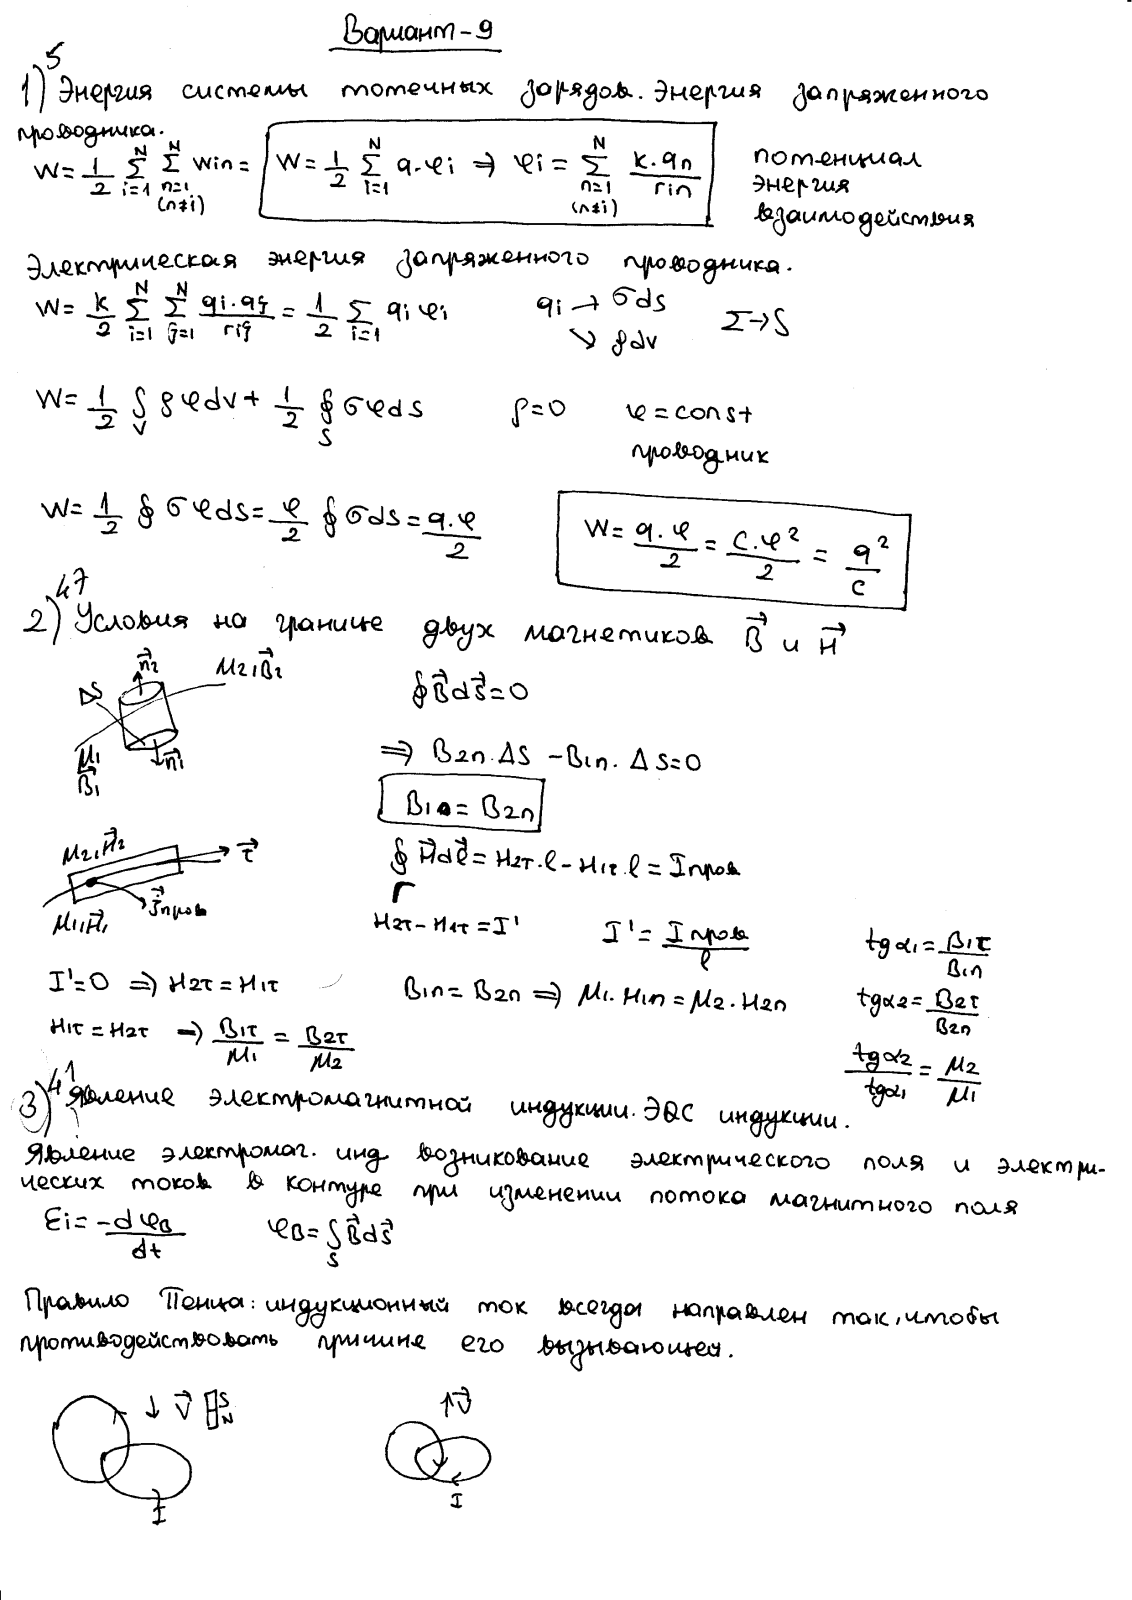 Вариант-9
5
1) Энергия системы точечных зарядов. Энергия запряженного
проводника.
W = 1/2 Σ(i=1)^N Σ(n=1 (n≠i))^N Win = W = 1/2 Σ(i=1)^N q·φi ⇒ φi = Σ(n=1 (n≠i))^N k·qn/rin
потенциал
энергия
взаимодействия
Электрическая энергия запряженного проводника.
W = k/2 Σ(i=1)^N Σ(j=1)^N qi·qj/rij = 1/2 Σ(i=1) qi φi qi → σds ↘ ρdv Σ→∫
W = 1/2 ∫v ρφdv + 1/2 ∮s σφds ρ=0 φ=const
проводник
W = 1/2 ∮ σφds = φ/2 ∮ σds = q·φ/2 W = q·φ/2 = C·φ²/2 = q²/C
47
2) Условия на границе двух магнетиков B⃗ и H⃗
n⃗2 μ2, B⃗2 ΔS μ1 B⃗1 n⃗1
∮B⃗dS⃗=0
⇒ B2n·ΔS - B1n·ΔS=0
B1n = B2n
μ2, H⃗2 τ⃗ μ1, H⃗1 j⃗пров
∮Γ H⃗dl⃗ = H2τ·l - H1τ·l = Iпров
H2τ - H1τ = I' I' = Iпров/l tgα1 = B1τ/B1n
I'=0 ⇒ H2τ = H1τ B1n = B2n ⇒ μ1·H1n = μ2·H2n tgα2 = B2τ/B2n
H1τ = H2τ → B1τ/μ1 = B2τ/μ2 tgα2/tgα1 = μ2/μ1
41
3) Явление электромагнитной индукции. ЭДС индукции.
Явление электромаг. инд возникование электрического поля и электри-
ческих токов в контуре при изменении потока магнитного поля
Ɛi = -dφB/dt φB = ∫s B⃗dS⃗
Правило Ленца: индукционный ток всегда направлен так, чтобы
противодействовать причине его вызывающей.
↓ V⃗ S N I
↑V⃗ I